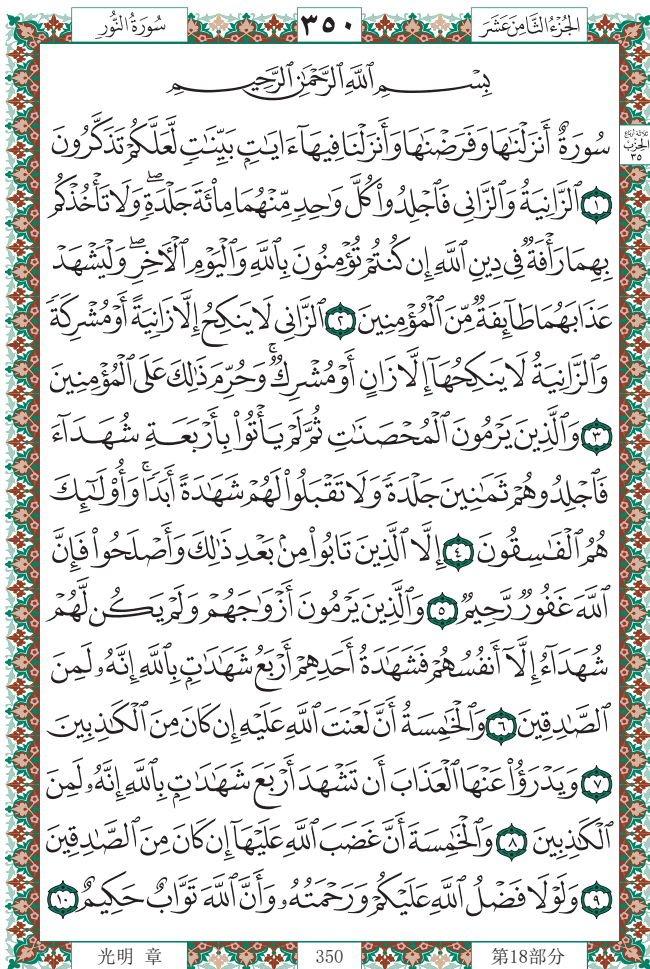 سُورَةُ النُّور
٣٥٠
الجُزْءُ الثَّامِنَ عَشَرَ
بِسْمِ ٱللَّهِ ٱلرَّحْمَٰنِ ٱلرَّحِيمِ
سُورَةٌ أَنزَلْنَٰهَا وَفَرَضْنَٰهَا وَأَنزَلْنَا فِيهَآ ءَايَٰتٍۭ بَيِّنَٰتٍ لَّعَلَّكُمْ تَذَكَّرُونَ
ثلاثة أرباع
الحزب
٣٥
١ ٱلزَّانِيَةُ وَٱلزَّانِى فَٱجْلِدُوا۟ كُلَّ وَٰحِدٍ مِّنْهُمَا مِا۟ئَةَ جَلْدَةٍۖ وَلَا تَأْخُذْكُم
بِهِمَا رَأْفَةٌ فِى دِينِ ٱللَّهِ إِن كُنتُمْ تُؤْمِنُونَ بِٱللَّهِ وَٱلْيَوْمِ ٱلْأَخِرِۖ وَلْيَشْهَدْ
عَذَابَهُمَا طَآئِفَةٌ مِّنَ ٱلْمُؤْمِنِينَ ٢ ٱلزَّانِى لَا يَنكِحُ إِلَّا زَانِيَةً أَوْ مُشْرِكَةً
وَٱلزَّانِيَةُ لَا يَنكِحُهَآ إِلَّا زَانٍ أَوْ مُشْرِكٌۚ وَحُرِّمَ ذَٰلِكَ عَلَى ٱلْمُؤْمِنِينَ
٣ وَٱلَّذِينَ يَرْمُونَ ٱلْمُحْصَنَٰتِ ثُمَّ لَمْ يَأْتُوا۟ بِأَرْبَعَةِ شُهَدَآءَ
فَٱجْلِدُوهُمْ ثَمَٰنِينَ جَلْدَةً وَلَا تَقْبَلُوا۟ لَهُمْ شَهَٰدَةً أَبَدًاۚ وَأُو۟لَٰٓئِكَ
هُمُ ٱلْفَٰسِقُونَ ٤ إِلَّا ٱلَّذِينَ تَابُوا۟ مِنۢ بَعْدِ ذَٰلِكَ وَأَصْلَحُوا۟ فَإِنَّ
ٱللَّهَ غَفُورٌ رَّحِيمٌ ٥ وَٱلَّذِينَ يَرْمُونَ أَزْوَٰجَهُمْ وَلَمْ يَكُن لَّهُمْ
شُهَدَآءُ إِلَّآ أَنفُسُهُمْ فَشَهَٰدَةُ أَحَدِهِمْ أَرْبَعُ شَهَٰدَٰتٍۭ بِٱللَّهِ إِنَّهُۥ لَمِنَ
ٱلصَّٰدِقِينَ ٦ وَٱلْخَٰمِسَةُ أَنَّ لَعْنَتَ ٱللَّهِ عَلَيْهِ إِن كَانَ مِنَ ٱلْكَٰذِبِينَ
٧ وَيَدْرَؤُا۟ عَنْهَا ٱلْعَذَابَ أَن تَشْهَدَ أَرْبَعَ شَهَٰدَٰتٍۭ بِٱللَّهِ إِنَّهُۥ لَمِنَ
ٱلْكَٰذِبِينَ ٨ وَٱلْخَٰمِسَةَ أَنَّ غَضَبَ ٱللَّهِ عَلَيْهَآ إِن كَانَ مِنَ ٱلصَّٰدِقِينَ
٩ وَلَوْلَا فَضْلُ ٱللَّهِ عَلَيْكُمْ وَرَحْمَتُهُۥ وَأَنَّ ٱللَّهَ تَوَّابٌ حَكِيمٌ ١٠
光明 章
350
第18部分